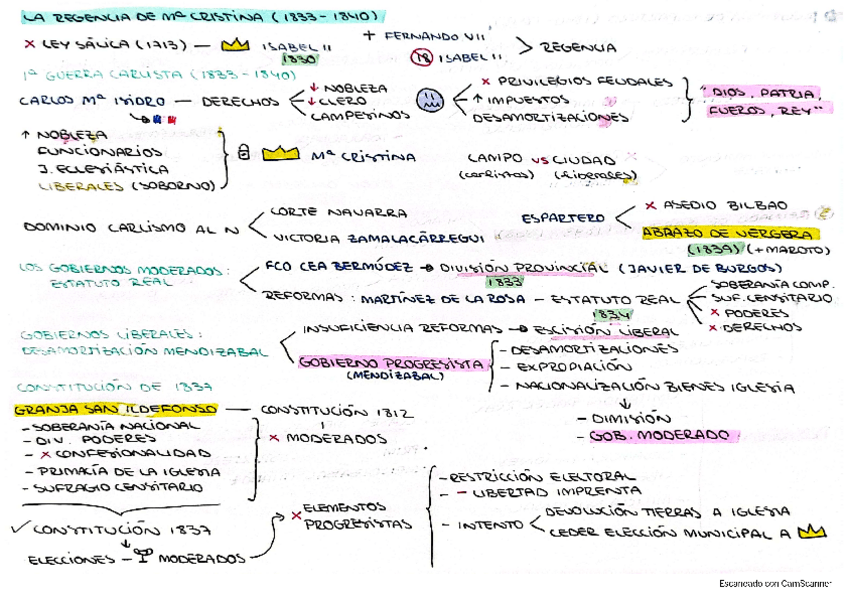 LA REGENCIA DE Mª CRISTINA (1833-1840)
x LEY SÁLICA (1713) — ISABEL II 1830
+ FERNANDO VII
18 ISABEL II
> REGENCIA
1ª GUERRA CARLISTA (1833-1840)
CARLOS Mª ISIDRO — DERECHOS
↓ NOBLEZA
↓ CLERO
CAMPESINOS
x PRIVILEGIOS FEUDALES
↑ IMPUESTOS
DESAMORTIZACIONES
"DIOS, PATRIA,
FUEROS, REY"
↑ NOBLEZA
FUNCIONARIOS
J. ECLESIÁSTICA
LIBERALES (SOBORNO)
Mª CRISTINA
CAMPO VS CIUDAD
(carlistas) (liberales)
DOMINIO CARLISMO AL N
CORTE NAVARRA
VICTORIA ZAMALACÁRREGUI
ESPARTERO
x ASEDIO BILBAO
ABRAZO DE VERGERA
(1839) (+MAROTO)
LOS GOBIERNOS MODERADOS:
ESTATUTO REAL
FCO CEA BERMÚDEZ → DIVISIÓN PROVINCIAL (JAVIER DE BURGOS)
1833
REFORMAS: MARTÍNEZ DE LA ROSA — ESTATUTO REAL
1834
SOBERANÍA COMP.
SUF. CENSITARIO
x PODERES
x DERECHOS
GOBIERNOS LIBERALES:
DESAMORTIZACIÓN MENDIZABAL
INSUFICIENCIA REFORMAS → ESCISIÓN LIBERAL
GOBIERNO PROGRESISTA
(MENDIZABAL)
- DESAMORTIZACIONES
- EXPROPIACIÓN
- NACIONALIZACIÓN BIENES IGLESIA
↓
- DIMISIÓN
- GOB. MODERADO
CONSTITUCIÓN DE 1837
GRANJA SAN ILDEFONSO — CONSTITUCIÓN 1812
x MODERADOS
- SOBERANÍA NACIONAL
- DIV. PODERES
- x CONFESIONALIDAD
- PRIMACÍA DE LA IGLESIA
- SUFRAGIO CENSITARIO
✓ CONSTITUCIÓN 1837
↓
ELECCIONES — MODERADOS
x ELEMENTOS
PROGRESISTAS
- RESTRICCIÓN ELECTORAL
- - LIBERTAD IMPRENTA
- INTENTO
DEVOLUCIÓN TIERRAS A IGLESIA
CEDER ELECCIÓN MUNICIPAL A
Escaneado con CamScanner